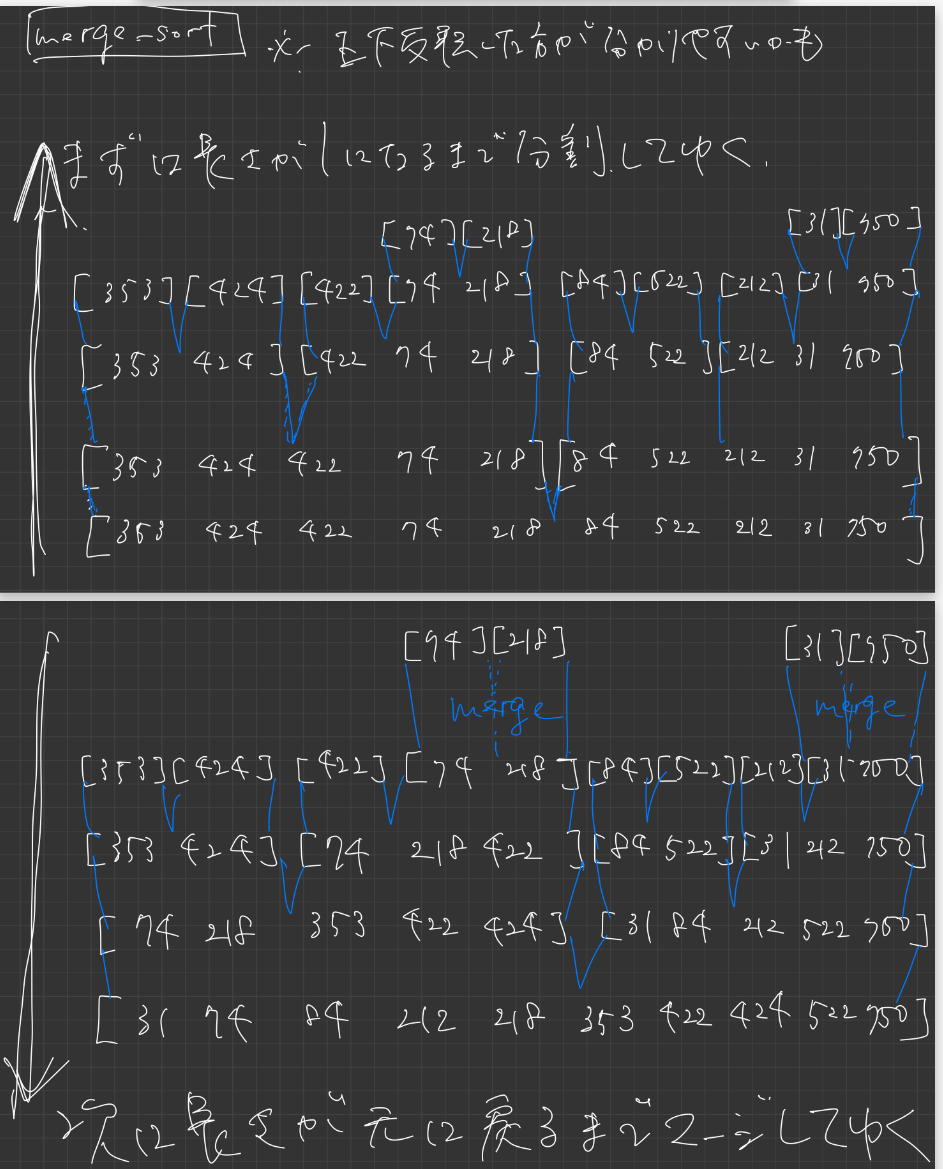 merge-sort ※ 上下反転した方が分かりやすいかも
まずは長さが1になるまで分割してゆく.
[74][218] [31][750]
[353][424][422][74 218] [84][522][212][31 750]
[353 424][422 74 218] [84 522][212 31 750]
[353 424 422 74 218][84 522 212 31 750]
[353 424 422 74 218 84 522 212 31 750]
[74][218] [31][750]
merge merge
[353][424] [422] [74 218][84][522][212][31 750]
[353 424][74 218 422][84 522][31 212 750]
[74 218 353 422 424] [31 84 212 522 750]
[31 74 84 212 218 353 422 424 522 750]
次は長さが元に戻るまでマージしてゆく